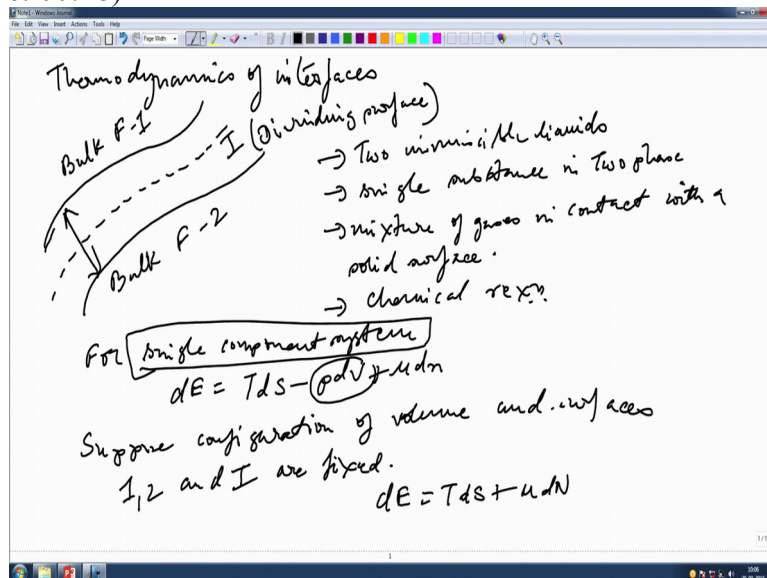 Note1 - Windows Journal
File Edit View Insert Actions Tools Help
Page Width
Thermodynamics of interfaces
Bulk F-1
I (Dividing surface)
Bulk F-2
→ Two immiscible liquids
→ single substance in Two phase
→ mixture of gases in contact with a
solid surface.
→ chemical rexn.
For single component system
dE = TdS - pdV + μdn
Suppose configuration of volume and surfaces
1,2 and I are fixed.
dE = TdS + μdN
1/1
1
10:06